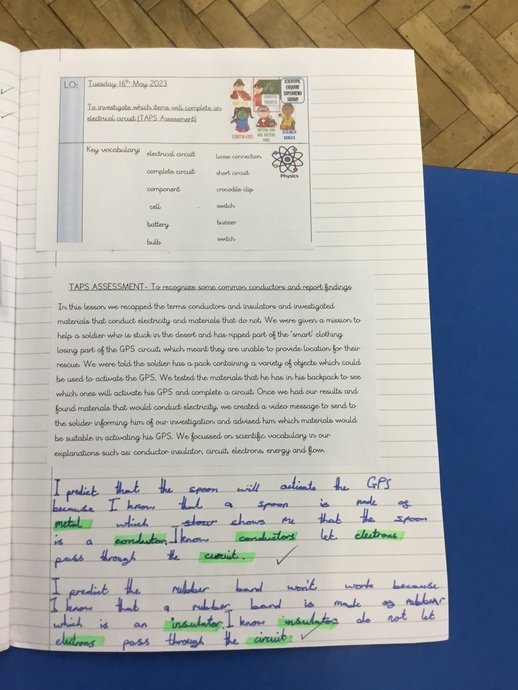 LO:
Tuesday 16th May 2023
To investigate which items will complete an
electrical circuit (TAPS Assessment)
SCIENTIFIC
ENQUIRY
SUPERHERO
SQUAD
Key vocabulary:
electrical circuit
loose connection
complete circuit
short circuit
component
crocodile clip
cell
switch
battery
buzzer
bulb
switch
Physics
TAPS ASSESSMENT- To recognize some common conductors and report findings
In this lesson we recapped the terms conductors and insulators and investigated
materials that conduct electricity and materials that do not. We were given a mission to
help a soldier who is stuck in the desert and has ripped part of the 'smart' clothing
losing part of the GPS circuit, which meant they are unable to provide location for their
rescue. We were told the soldier has a pack containing a variety of objects which could
be used to activate the GPS. We tested the materials that he has in his backpack to see
which ones will activate his GPS and complete a circuit. Once we had our results and
found materials that would conduct electricity, we created a video message to send to
the soldier informing him of our investigation and advised him which materials would
be suitable in activating his GPS. We focussed on scientific vocabulary in our
explanations such as: conductor insulator, circuit, electrons, energy and flow.
I predict that the spoon will activate the GPS
because I know that a spoon is made of
metal which shows me that the spoon
is a conductor. I know conductors let electrons
pass through the circuit.
I predict the rubber band won't work because
I know that a rubber band is made of rubber
which is an insulator. I know insulators do not let
electrons pass through the circuit.